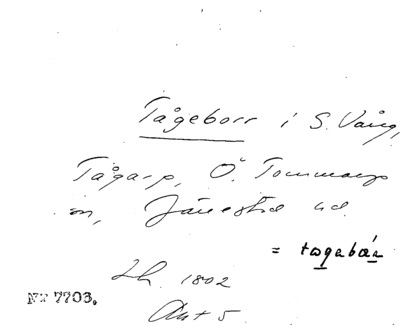 Tågeborr i S. Vång,
Tågarp, Ö. Tommarps
sn, Järrestad hd.
= tågabår
Lh. 1802
Ant 5
NR 7703.